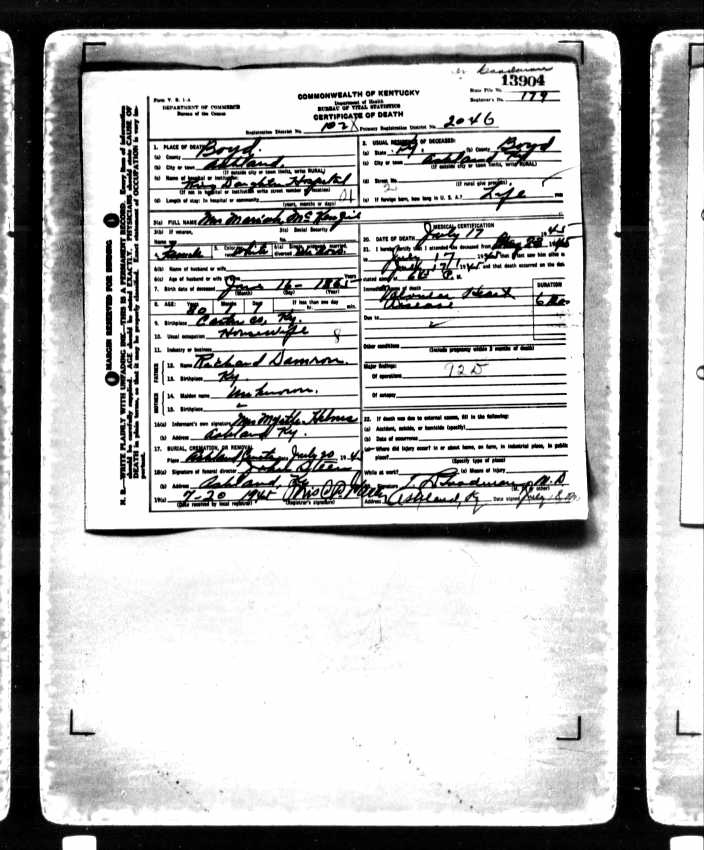 13904
Form V. S. 1-A
COMMONWEALTH OF KENTUCKY
State File No.
DEPARTMENT OF COMMERCE
Bureau of the Census
Department of Health
BUREAU OF VITAL STATISTICS
Registrar's No. 179
CERTIFICATE OF DEATH
Registration District No. 102 Primary Registration District No. 2046
1. PLACE OF DEATH
(a) County Boyd.
(b) City or town Ashland
(If outside city or town limits, write RURAL)
(c) Name of hospital or institution
Kings Daughters Hospital
(If not in hospital or institution write street number or location)
(d) Length of stay: In hospital or community
(years, months or days)
2. USUAL RESIDENCE OF DECEASED:
(a) State Ky. (b) County Boyd
(c) City or town Ashland Ky
(If outside city or town limits, write RURAL)
(d) Street No.
(If rural give precinct)
(e) If foreign born, how long in U. S. A.? Life years
3(a) FULL NAME Mrs Mariah McKenzie
3(b) If veteran,
Name war
3(c) Social Security
No.
Female 5. Color White 6(a) Single, married, divorced Widow
6(b) Name of husband or wife
6(c) Age of husband or wife Years
7. Birth date of deceased June 16 - 1865
(Month) (Day) (Year)
8. AGE: Years Months Days If less than one day
80 1 1 hr. min.
9. Birthplace Carter Co, Ky.
10. Usual occupation Housewife
11. Industry or business
FATHER
12. Name Richard Damron.
13. Birthplace Ky.
MOTHER
14. Maiden name Unknown.
15. Birthplace
16(a) Informant's own signature Mrs Myrtle Helms
(b) Address Ashland Ky.
17. BURIAL, CREMATION, OR REMOVAL
Place Ashland July 20, 1945
18(a) Signature of funeral director John Steen
(b) Address Ashland, Ky
19(a) 7-20 1945
(Date received by local registrar) (Registrar's signature)
MEDICAL CERTIFICATION
20. DATE OF DEATH July 17 1945
21. I hereby certify that I attended the deceased from
to July 17, 1945 that I last saw him alive on
July 17, 1945 and that death occurred on the date
stated above at P. M.
Immediate cause of death DURATION
Valvular Heart
Disease 6 Mo.
Due to
Other conditions
(Include pregnancy within 3 months of death)
Major findings: 92D
Of operations
Of autopsy
22. If death was due to external causes, fill in the following:
(a) Accident, suicide, or homicide (specify)
(b) Date of occurrence
(c) Where did injury occur? in or about home, on farm, in industrial place, in public
place?
(Specify type of place)
While at work? (e) Means of injury
Signature Goodman M.D.
(M. D. or other)
Address Ashland, Ky Date signed July 18
MARGIN RESERVED FOR BINDING
N. B.—WRITE PLAINLY WITH UNFADING INK—THIS IS A PERMANENT RECORD. Every item of information should be carefully supplied. AGE should be stated EXACTLY. PHYSICIANS should state CAUSE OF DEATH in plain terms, so that it may be properly classified. Exact statement of OCCUPATION is very important.